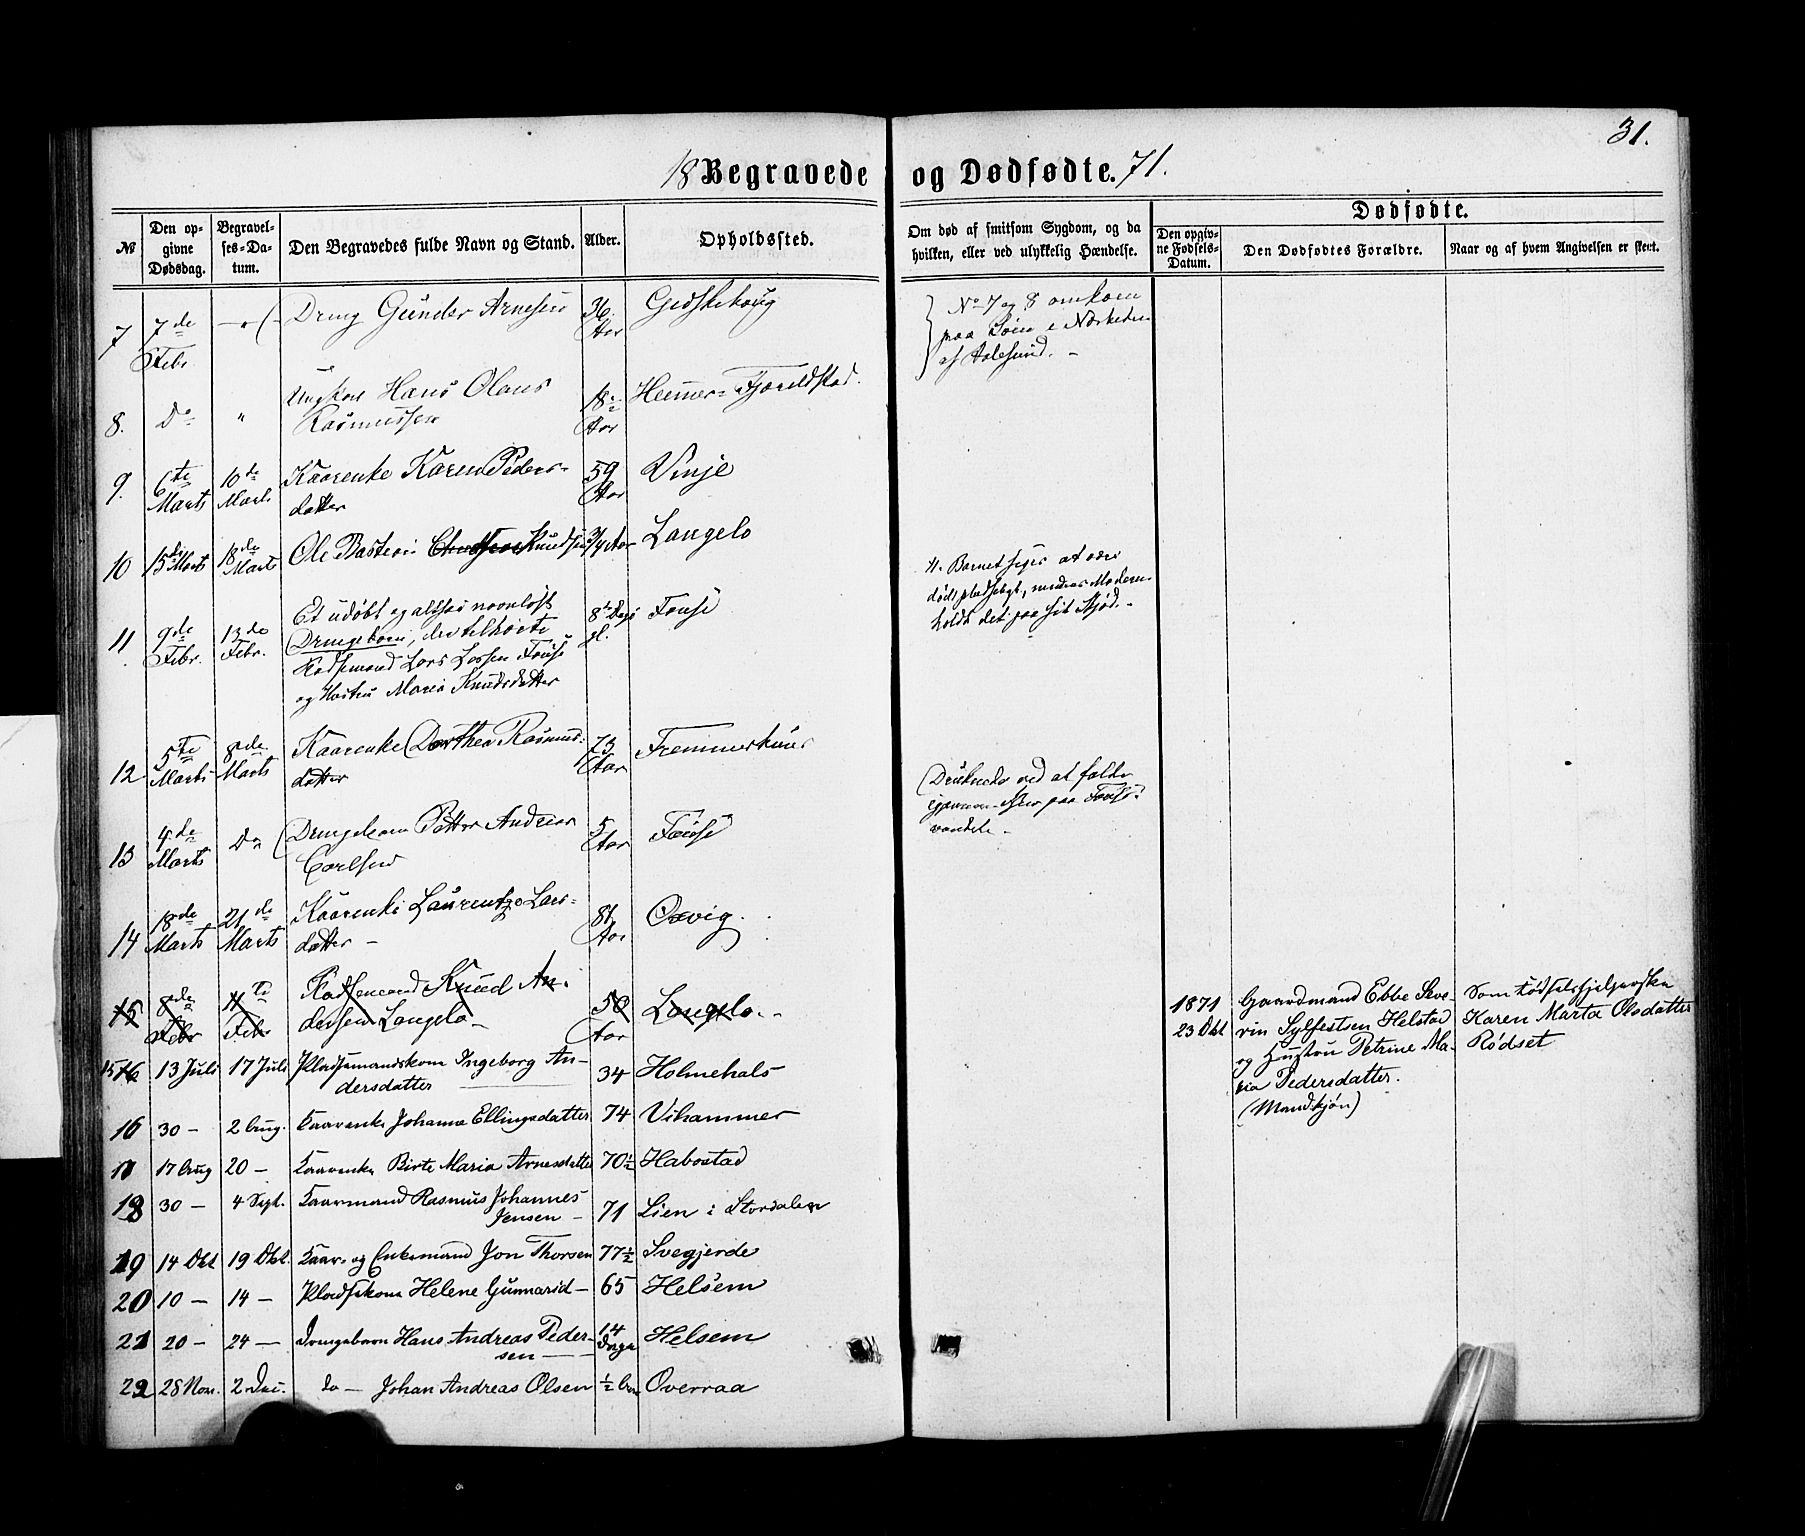 31.
18 Begravede og Dødfødte. 71.
№
Den opgivne Dødsdag.
Begravelses-Datum.
Den Begravedes fulde Navn og Stand.
Alder.
Opholdssted.
Om død af smitsom Sygdom, og da hvilken, eller ved ulykkelig Hændelse.
Dødfødte.
Den opgivne Fødsels-Datum.
Den Dødfødtes Forældre.
Naar og af hvem Angivelsen er skeet.
7 7de Febr — Dreng Gunder Arnesen 36 Aar
No 7 og 8 omkom
paa Søen i Nærheden
af Aalesund. -
8. Do " Ungkarl Hans Olaus
Rasmussen 18 Aar
9. 6te Marts 10de Marts Kaarenke Karen Peders-
datter 59 Aar Vinje
10 15de Marts 18de Marts Ole Bastian Knudsen 3/4 Aar Langelo
11 9de Febr. 13de Febr. Et udøbt og altsaa navnløst
Drengebarn, der tilhørte
Pladsemand Lars Larsen Fause
og Hustru Maria Knudsdatter 8te Dage gl. Fause
11. Barnet siges at være
død pludseligt, medens Moderen
holdt det paa sit Skjød. -
12 5te Marts 8de Marts Kaarenke Dorthea Rasmus-
datter 73 Aar
13 4de Marts Do Drengebarn Petter Andreas
Carlsen 5 Aar Fause
Druknede ved at falde
igjennem Isen paa Fause-
vandet. -
14 18de Marts 21de Marts Kaarenke Laurentze Lars-
datter - 81 Aar Oxvig.
15 8de Febr 11te Febr Pladsemand Knud An-
dersen Langelo - 50 Aar Langelo. -
15 16 13 Juli 17 Juli Pladsemandskone Ingeborg An-
dersdatter 34 Holmehals
16 30 - 2 Aug. Kaarenke Johanna Ellingsdatter 74 Vihammer
17 17 Aug 20 - Kaarenke Birte Maria Arnesdatter 70½ Habostad
18 30 - 4 Sept. Kaarmand Rasmus Johannes
Jensen - 71 Lien i Stordalen
19 14 Okt 19 Okt. Kaar- og Enkemand Jon Thorsen 77½ Svegjerde
20 10 - 14 - Pladsekone Helene Gunnarsd - 65 Helsem
21 20 - 24 - Drengebarn Hans Andreas Peder-
sen 14 Dage Helsem
22 28 Nov. 2 Dec. do - Johan Andreas Olsen ½ Aar Overraa
1871
23 Okt
Gaardmand Ebbe Seve-
rin Sylfestsen Helstad
og Hustru Petrine Ma-
ria Pedersdatter.
(Mandkjøn)
Som Fødselshjelperske
Karen Marta Olsdatter
Rødset